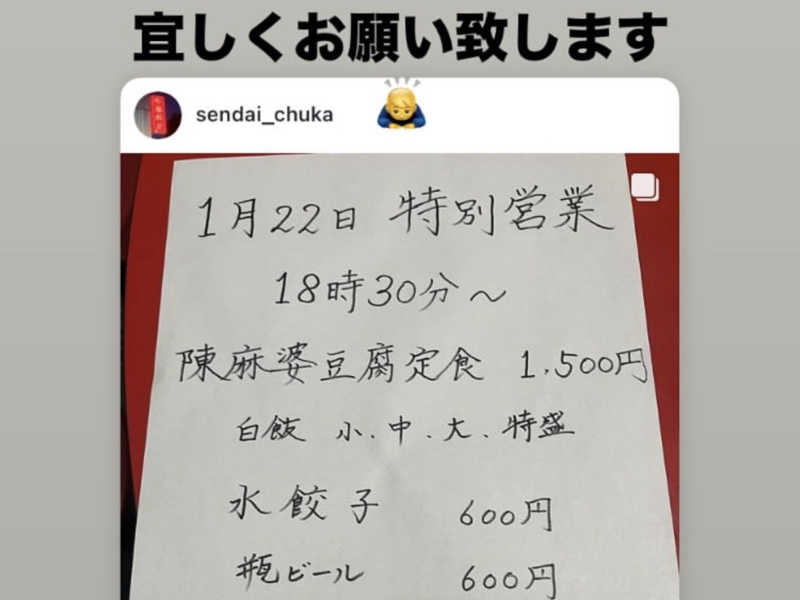 宜しくお願い致します
sendai_chuka
1月22日 特別営業
18時30分～
陳麻婆豆腐定食 1,500円
白飯 小.中.大.特盛
水餃子 600円
瓶ビール 600円